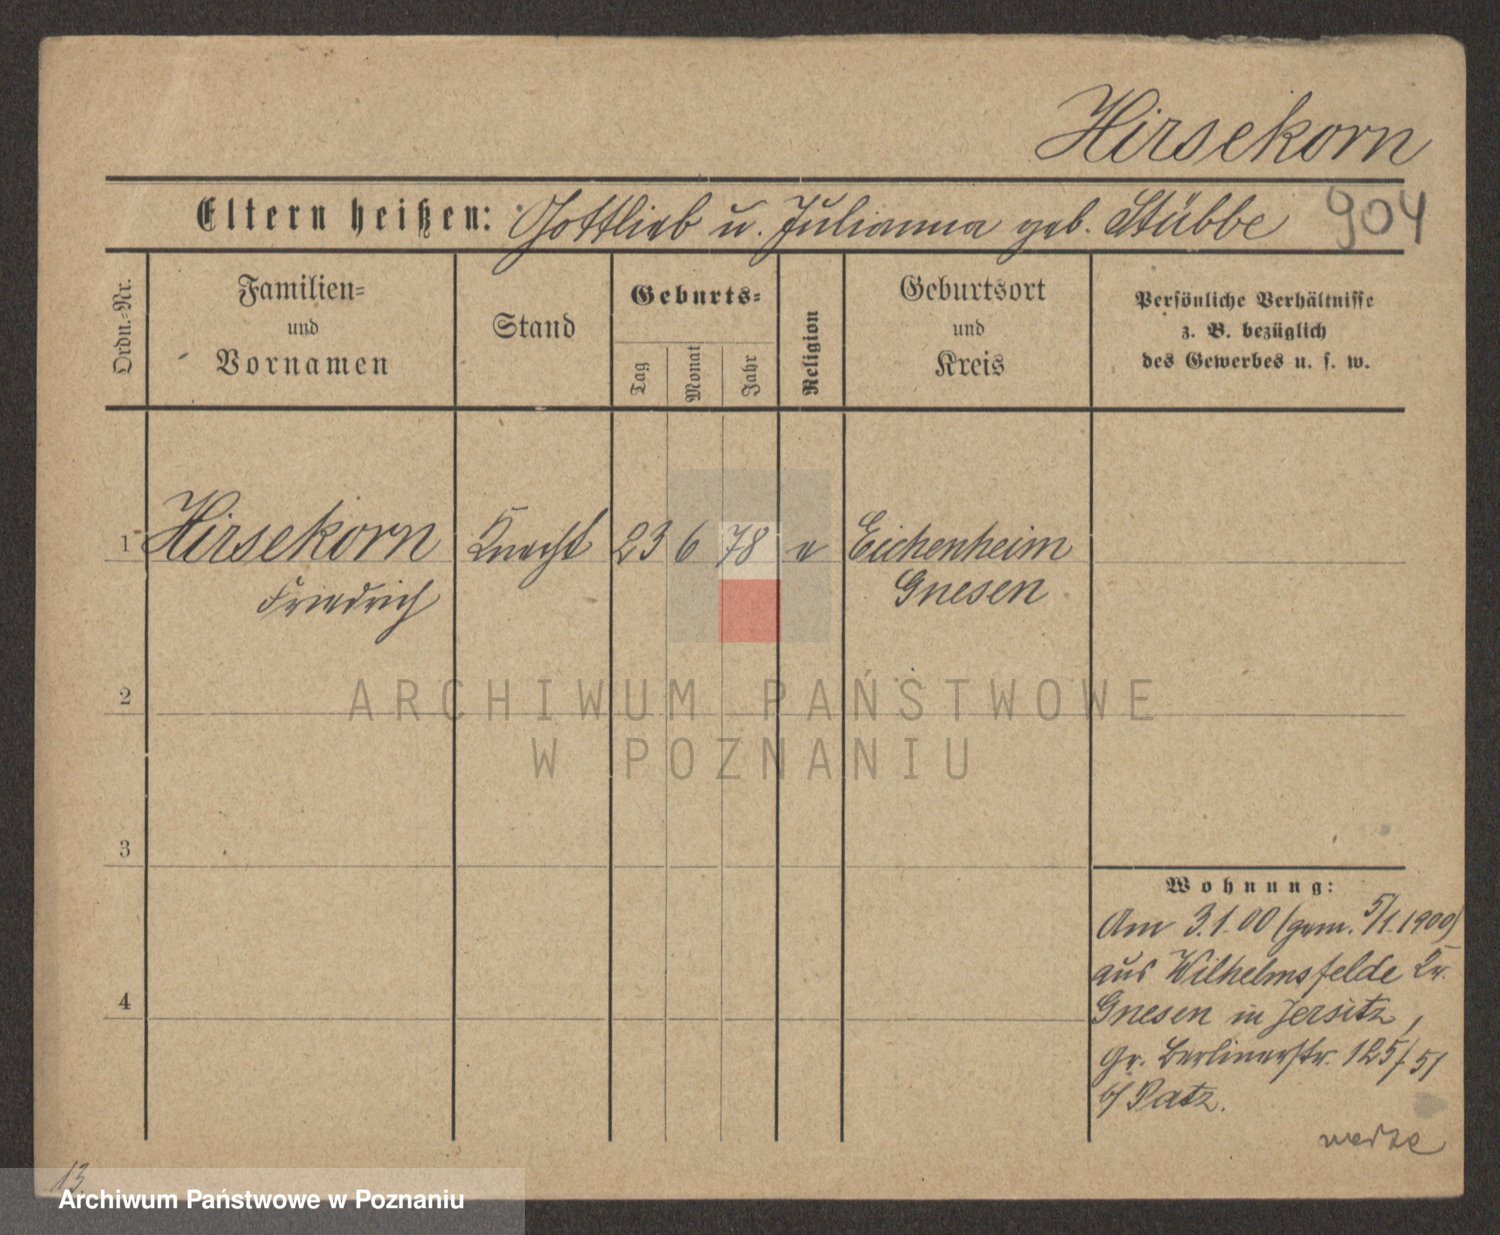 Hirsekorn
Eltern heißen: Gottlieb u. Julianna geb. Stübbe 904
Ordn.-Nr.
Familien-
und
Vornamen
Stand
Geburts-
Tag
Monat
Jahr
Religion
Geburtsort
und
Kreis
Persönliche Verhältnisse
z. B. bezüglich
des Gewerbes u. s. w.
1 Hirsekorn Knecht 23 6 78 e Eichenheim
Friedrich Gnesen
2
ARCHIWUM PAŃSTWOWE
W POZNANIU
3
4
Wohnung:
Am 3.1.00 (gem. 5/1.1900)
aus Wilhelmsfelde Kr.
Gnesen in Jersitz,
Gr. Berlinerstr. 125/
b/ Patz.
13
Archiwum Państwowe w Poznaniu